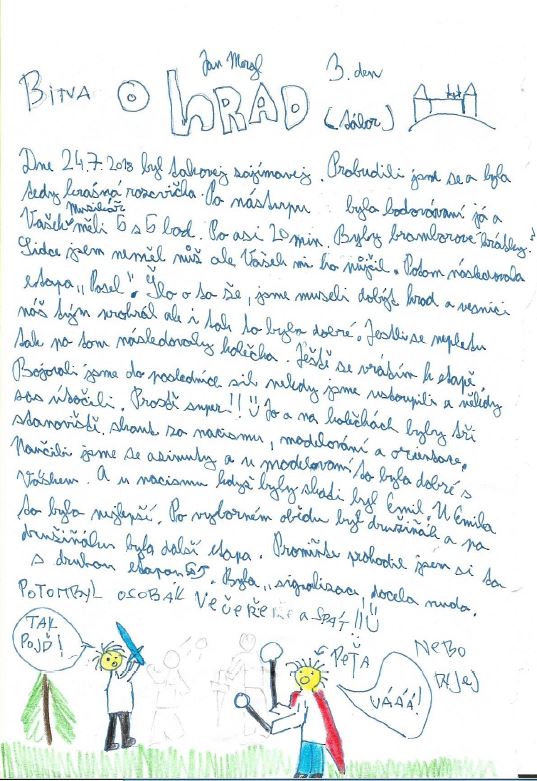 Jan Morgl
3. den
BITVA O HRAD
(tábor)
Dne 24.7.2018 byl takovej zajímavej. Probudili jsme se a byla
tedy krásná rozcvička. Po nástupu byla bodování já a
Mušilář
Vašek měli 5 s 5 bod. Po asi 20 min. Byly bramborove škrábky.
Sidce jsem neměl nůž ale Vašek mi ho půjčil. Potom následovala
etapa "Posel". Šlo o to že, jsme museli dobýt hrad a vesnici
náš tým prohrál ale i tak to bylo dobré. Jestli se nepletu
tak na tom následovaly kolečka. Ještě se vrátím k etapě.
Bojovali jsme do posledních sil nekdy jsme ustoupili a někdy
zas útočili. Prostě super!! Jo a na kolečkách byly tři
stanoviště. skaut za nacismu, modelování a orientace.
Naučili jsme se azimuty a u modelovaní to bylo dobré s
Vaškem. A u nacismu když byly skauti byl Emil. U Emila
to bylo nejlepší. Po výborném obědu byl družiňák a po
družiňáku byla další etapa. Promiňte prohodil jsem si to
s druhou etapou. Byla "signalizace", docela nuda.
POTOM BYL OSOBÁK VEČEŘE a SPÁT!!
TAK
POJĎ!
PEŤA
NEBO
DĚJ
VÁÁÁ!